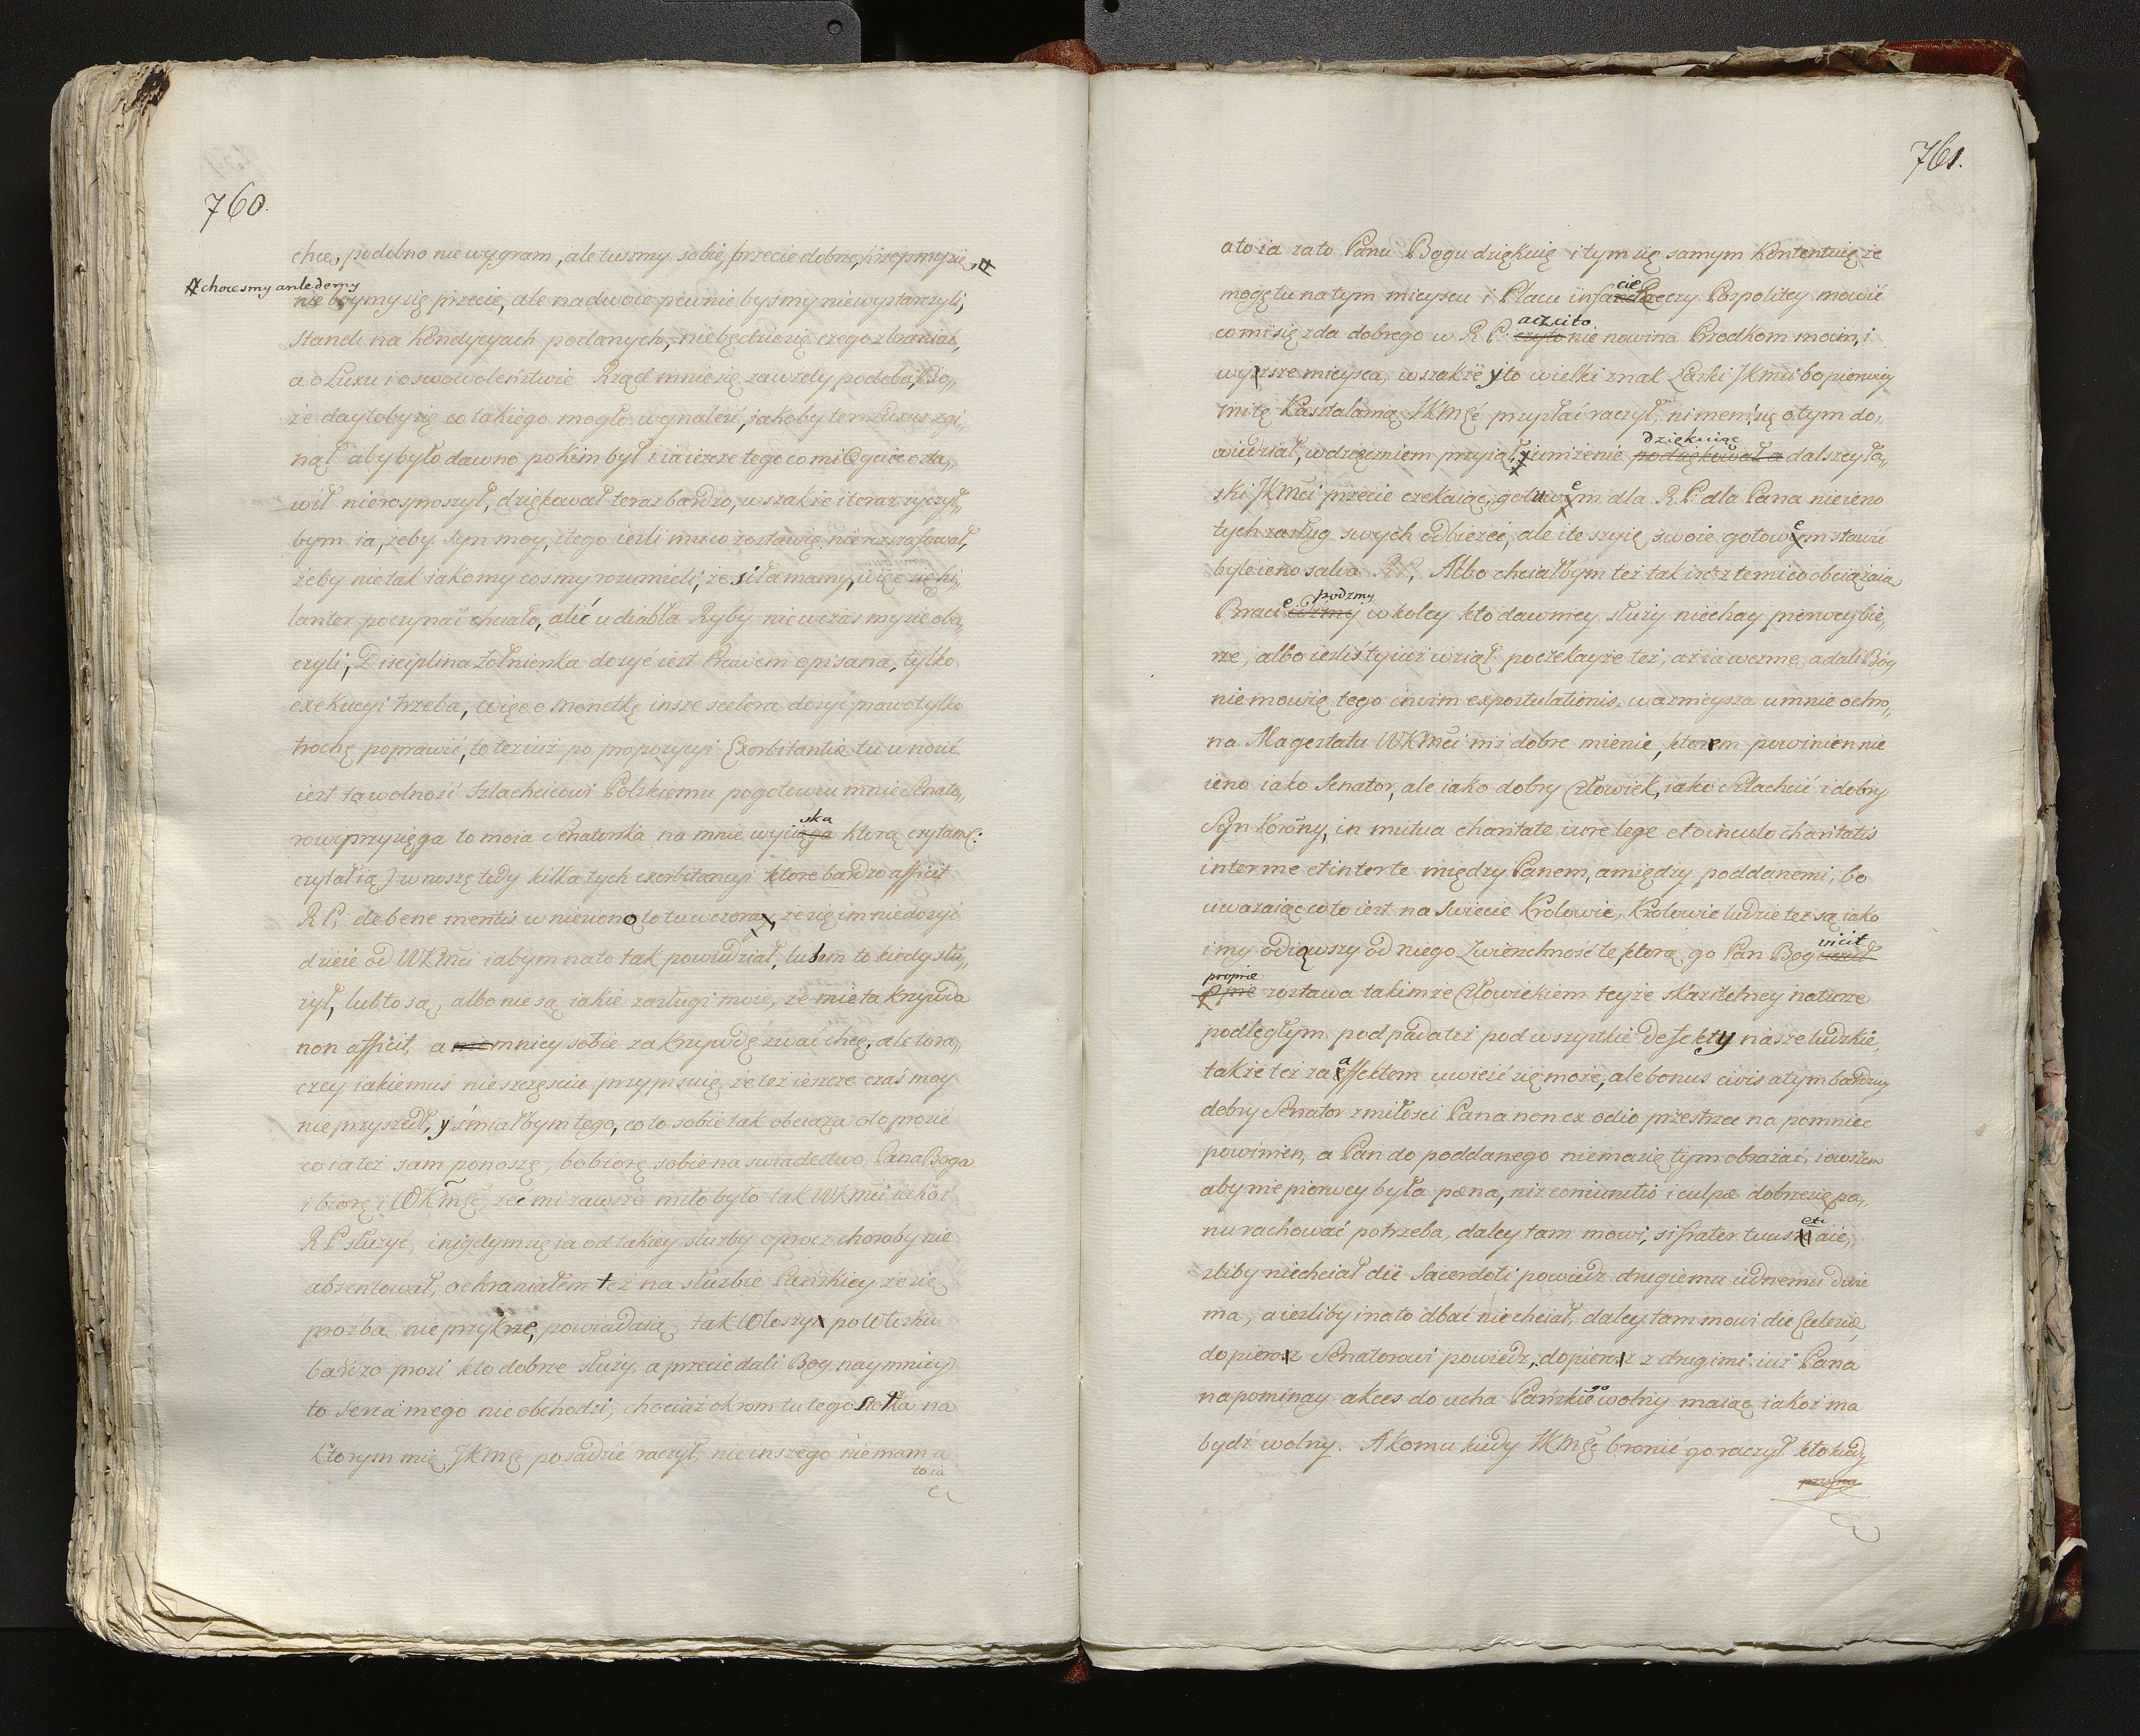 760.
chce, podobno nie wygram, ale tuszmy sobie, przecie dobrze, krzepmy się,
chocesmy anledemy
nie boymy się przecie, ale na dwoie pewnie bysmy nie wystarczyli;
Standi na Kondycyach podanych, nie będzie się czego zbraniać,
a o Luxu i o swowoleństwie Rząd mnie się zawzdy podoba, Bo„
że day to by się co takiego mogło wynaleść, jakoby ten Luxus zgi„
nął aby było dawno pokim był i ia ieszcze tego co mi Oyciec zta„
wił nierosproszył, dziękował teraz bardzo, wszakże i teraz życzył„
bym ia, żeby Syn moy, tego iezli mu co zostawię nierozszafował,
żeby nie tak iako my cosmy rozumieli, że siła mamy, więc się hi„
lariter poczynać chciało, alić u diabła Ryby nie wczas my się oba„
czyli; Disciplina żołnierska dosyć iest Prawem opisana, tylko
exekucyi trzeba, więc o Monetkę insze scelera dosyć prawo tylko
trochę poprawić, to też iusz po propozycyi Exorbitantie tu wnosić
iest ta wolność Szlachcicowi Polskiemu pogotowiu mnie Senato„
rowi przysięga to moia Senatorska na mnie wyciąga ska ktorą czytam:
czytał ią) wnoszę tedy kilka tych exorbitancyi ktore bardzo afficit
R P. de bene meritis wniesiono to tu wczora, że się im niedosyć
dzieie od WKMci iabym na to tak powiedział, lubem to kiedy słu„
żył, lub to są, albo nie są iakie zasługi moie, że mie ta krzywda
non afficit, a nie mniey sobie za krzywdę zwać chcę, ale to ra„
czey iakiemuś nie szczęściu przypisuię że też ieszcze czas moy
nie przyszedł, y śmiał bym tego, co to sobie tak obciąża oto prosić
co ia też sam ponoszę, bo biorę sobie na swiadectwo Pana Boga
i biorę i WKMć, że mi zawsze miło było tak WKMci iako i
R P. służyć, i nigdym się ia od takiey służby oprocz choroby nie
absentował, ochraniałem też na służbie Pańskiey że się
prozba nie przykrze, powiadaią tak Włoszy po Włosku
bardzo prosi kto dobrze służy, a przecie dali Bog naymniey
to serca mego nie obchodzi, chociaż okrom tu tego stołka na
ktorym mię JKMć posadzić raczył, nic inszego nie mam a
to ia
761.
a to ia za to Panu Bogu dziękuię i tym się samym kontentuię że
mogę tu na tym mieyscu i Placu in facie Rzeczy Pospolitey mowić
co mi się zda dobrego w R P. aczci to nie nowina Przodkom moim, i
wyższe mieysca, wszakże y to wielki znak Łaski JKMci bo pierwiey
mi tę Kasztelanią JKMć przysłać raczył, ni mem się o tym do„
wiedział, wdzięczniem przyiął, i uniżenie dziękuiąc podziękował a dalszey ła„
ski JKMci przecie czekaiąc, gotuwem dla R P. dla Pana nie ieno
tych zasług swych odbieżeć, ale i te szyię swoie gotowem stawić
byle ieno salva R P. Albo chciałbym też tak iść z temi co obciążaią
Pracie podzmy w koley kto dawniey służy niechay pierwey bie„
rze, albo iezliś ty iuż wziął poczekayże też, aż ia wezmę, a dali Bóg
nie mowię tego animo expostulationis, ważnieysza u mnie ochro„
na Magestatu WKMci niż dobre mienie, ktorem powinien nie
ieno iako Senator, ale iako dobry Człowiek, iako szlachcic i dobry
Syn Korony, in mutua charitate iure lege et vinculo charitatis
inter me et inter te między Panem, a między poddanemi, bo
uważaiąc co to iest na Swiecie Krolowie, Krolowie ludzie też są iako
i my odiąwszy od niego Zwierzchność te, ktorą go Pan Bog vicit
proprie zostawa takimże Człowiekiem teyże skazitelney naturze
podległym podpada też pod wszytkie defekty nasze ludzkie,
także też za affektem uwieść się może, ale bonus civis a tym bardziey
dobry Senator z miłosci Pana non ex odio przestrzec napomniec
powinien, a Pan do poddanego nie ma się tym obrażać, i owszem
aby nie pierwey była pœna, niż coniunctio i culpæ dobrze się pa„
nu rachować potrzeba, daley tam mowi, si frater tuus etc: a ie„
zliby niechciał dic Sacerdoti powiedz drugiemu iednemu dwie
ma, a iezliby i na to dbać niechciał, daley tam mowi dic Ecclesiæ,
dopierosz Senatorowi powiedz, dopierosz z drugimi iuż Pana
napominay akces do ucha Pańskiego wolny maiąc iakoż ma
bydź wolny. A komu kiedy JKMć bronić go raczył kto kiedy